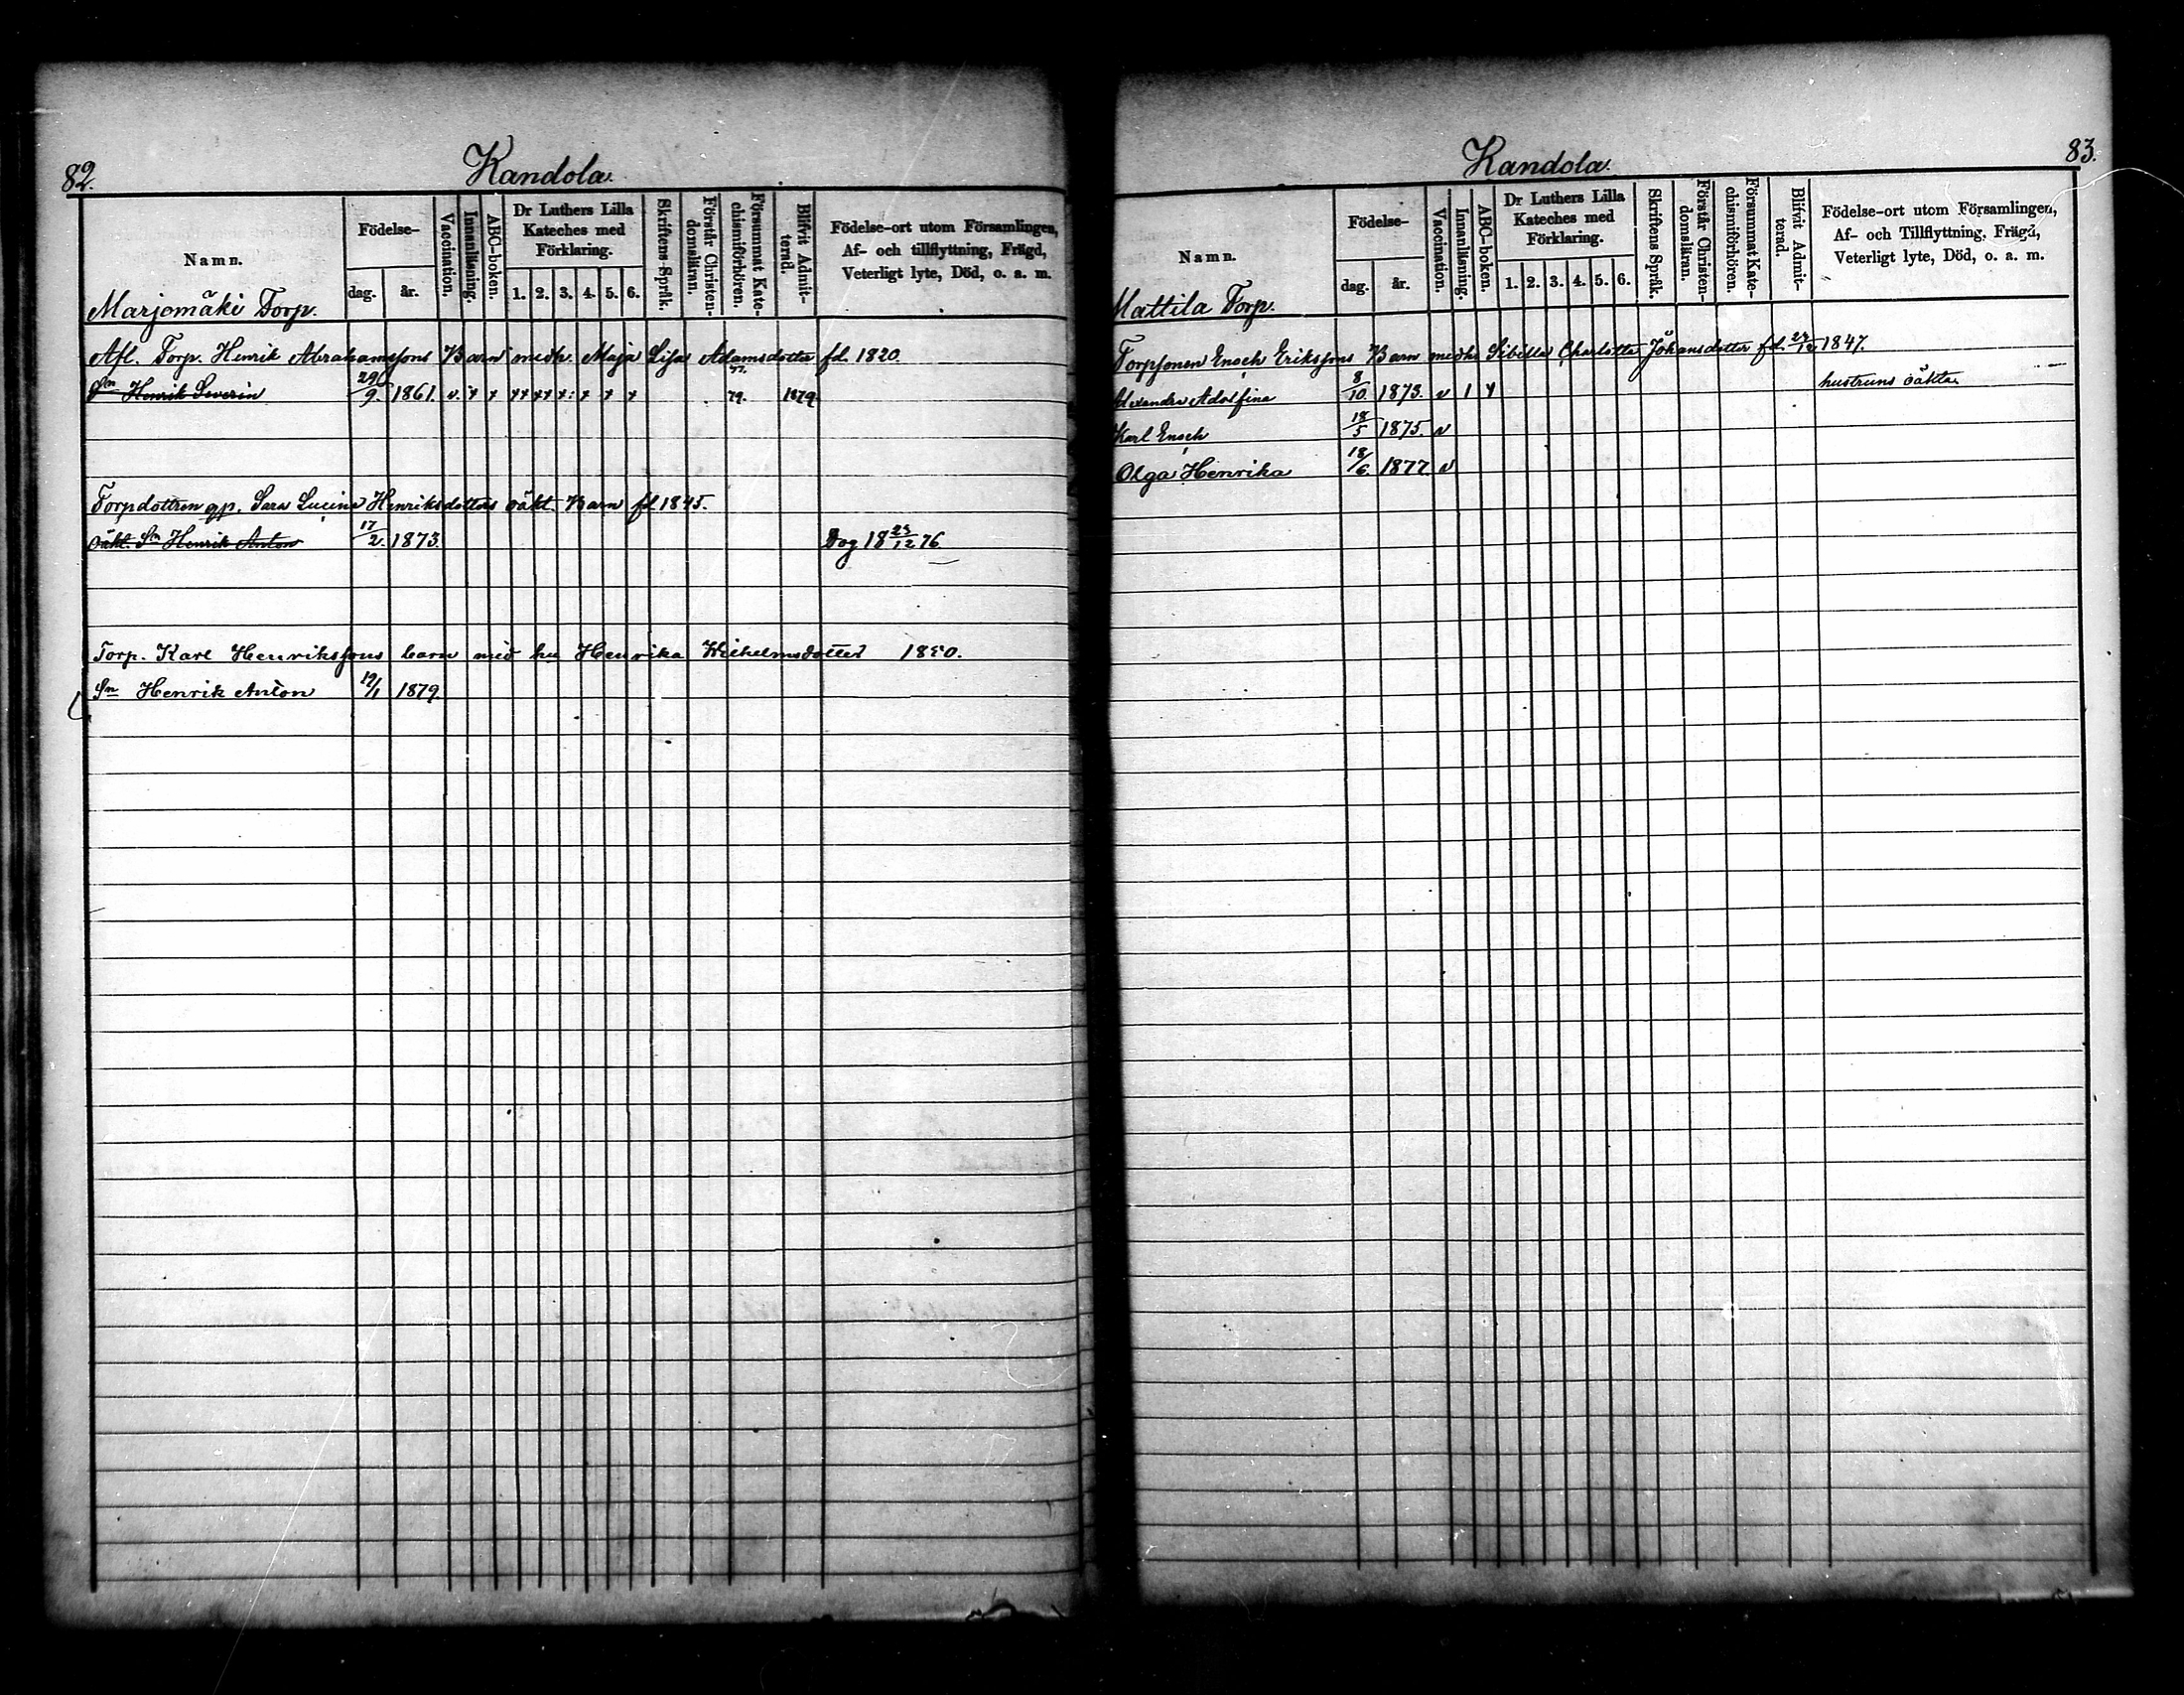 82.
Kandola.
Namn.
Födelse-
dag.
år.
Vaccination.
Innanläsning.
ABC-boken.
Dr Luthers Lilla
Kateches med
Förklaring.
1. 2. 3. 4. 5. 6.
Skriftens Språk.
Förstår Christen-
domsläran.
Försummat Kate-
chismiförhören.
Blifvit Admit-
terad.
Födelse-ort utom Församlingen,
Af- och tillflyttning, Frägd,
Veterligt lyte, Död, o. a. m.
Marjomäki Torp.
Afl. Torp. Henrik Abrahamssons Barn med h. Maja Lisa Adamsdotter fd. 1820.
Sn Henrik Severin 29/9. 1861. v. 77. 79. 1879.
Torpdottren gp. Sara Lucina Henriksdotters oäkt. Barn fd. 1845.
oäkt. Sn Henrik Anton 17/2. 1873. Dog 18 25/12 76.
Torp. Karl Henrikssons barn med hu Henrika Wilhelmsdotter 1850.
Sn Henrik Anton 19/1 1879.
83.
Kandola.
Namn.
Födelse-
dag.
år.
Vaccination.
Innanläsning.
ABC-boken.
Dr Luthers Lilla
Kateches med
Förklaring.
1. 2. 3. 4. 5. 6.
Skriftens Språk.
Förstår Christen-
domsläran.
Försummat Kate-
chismiförhören.
Blifvit Admit-
terad.
Födelse-ort utom Församlingen,
Af- och Tillflyttning, Frägd,
Veterligt lyte, Död, o. a. m.
Mattila Torp.
Torpsonen Enoch Erikssons Barn med h. Sibilla Charlotta Johansdotter fd. 1847.
Alexandra Adolfina 8/10. 1873. v hustruns oäkta.
Karl Enoch 18/5 1875. v
Olga Henrika 18/6 1877. v